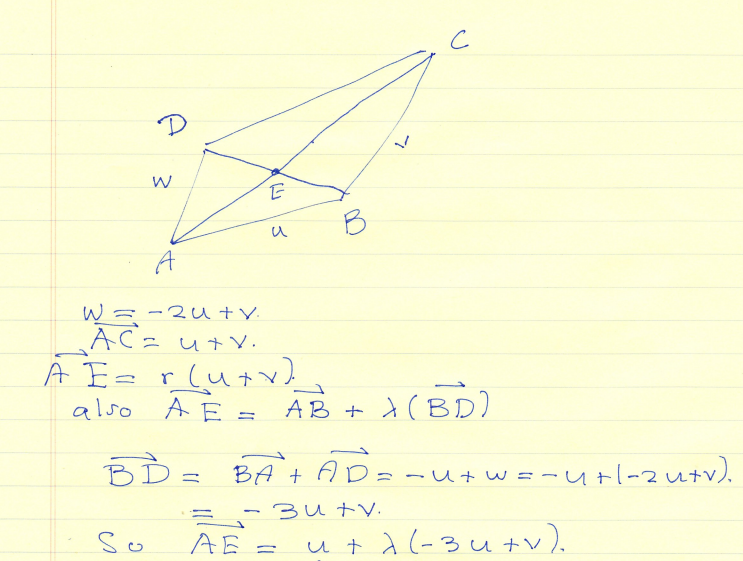 C
D
v
w
E
B
u
A
w = -2u + v.
AC = u + v.
AE = r(u + v).
also AE = AB + λ(BD)
BD = BA + AD = -u + w = -u + (-2u + v).
= -3u + v.
So AE = u + λ(-3u + v).